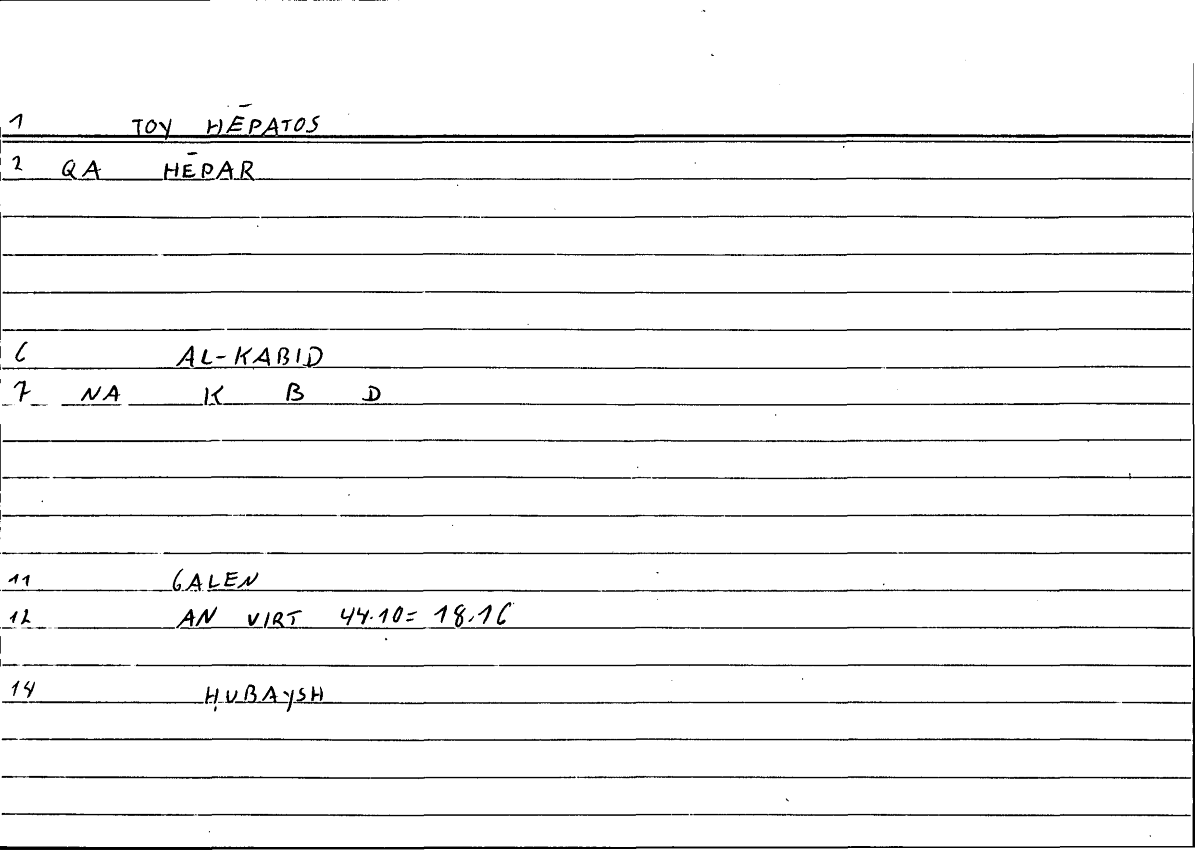 1 TOY HĒPATOS
2 QA HĒPAR
6 AL-KABID
7 NA K B D
11 GALEN
12 AN VIRT 44.10= 18.16
14 ḤUBAYSH